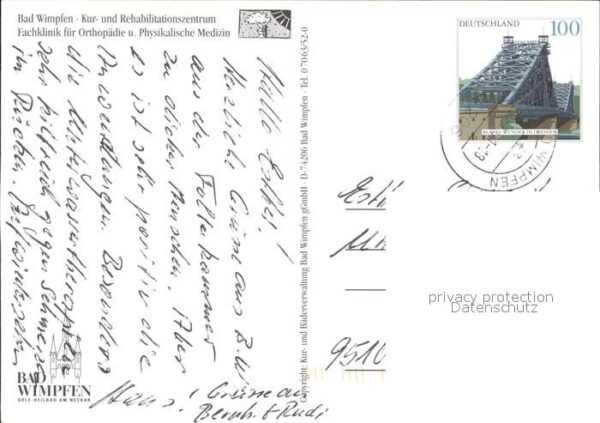 Bad Wimpfen · Kur- und Rehabilitationszentrum
Fachklinik für Orthopädie u. Physikalische Medizin
Hallo Esther!
Herzliche Grüsse aus B. Wi
aus der Folterkammer
zu dieser Aber
es ist sehr positiv die
Anwendungen. Besonders
die
sehr hilfreich gegen Schmerzen
im Rücken. Auf Wiedersehen
Hans! Grüsse an
Bernh. & Rudi
BAD
WIMPFEN
SOLE-HEILBAD AM NECKAR
Copyright: Kur- und Bäderverwaltung Bad Wimpfen gGmbH · D-74206 Bad Wimpfen · Tel. 0 70 63/52-0
DEUTSCHLAND 100
BLAUES WUNDER IN DRESDEN
WIMPFEN
Est
9510
privacy protection
Datenschutz